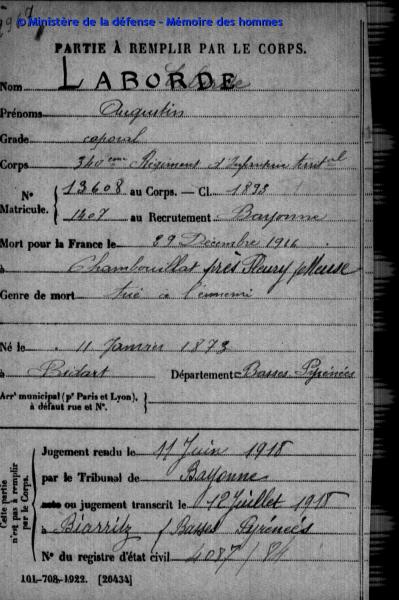 © Ministère de la défense - Mémoire des hommes
PARTIE À REMPLIR PAR LE CORPS.
Nom LABORDE
Prénoms Augustin
Grade caporal
Corps 340eme Régiment d'Infanterie territal
N° Matricule. { 13608 au Corps. — Cl. 1893
1407 au Recrutement Bayonne
Mort pour la France le 29 Décembre 1916
à Chambouillat près Fleury Meuse
Genre de mort tué à l'ennemi
Né le 11 Janvier 1873
à Bidart Département Basses Pyrénées
Arrt municipal (pr Paris et Lyon), à défaut rue et N°.
Cette partie n'est pas à remplir par le Corps.
Jugement rendu le 11 Juin 1918
par le Tribunal de Bayonne
acte ou jugement transcrit le 12 Juillet 1918
à Biarritz Basses Pyrénées
N° du registre d'état civil 4087/84
101-708-1922. [26434]